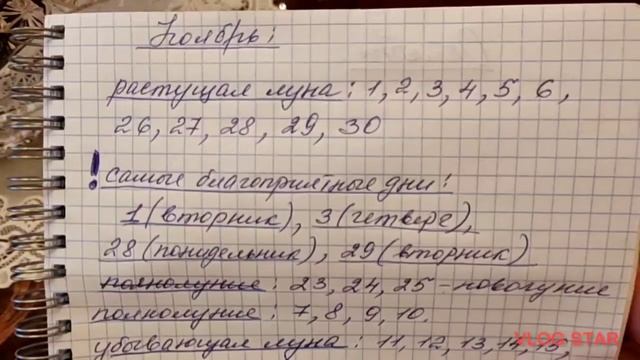 Ноябрь:
растущая луна: 1, 2, 3, 4, 5, 6,
26, 27, 28, 29, 30
! самые благоприятные дни:
1 (вторник), 3 (четверг),
28 (понидельник), 29 (вторник)
полнолуние: 23, 24, 25 - новолуние
полнолуние: 7, 8, 9, 10.
убывающая луна: 11, 12, 13, 14, 15
VLOG STAR